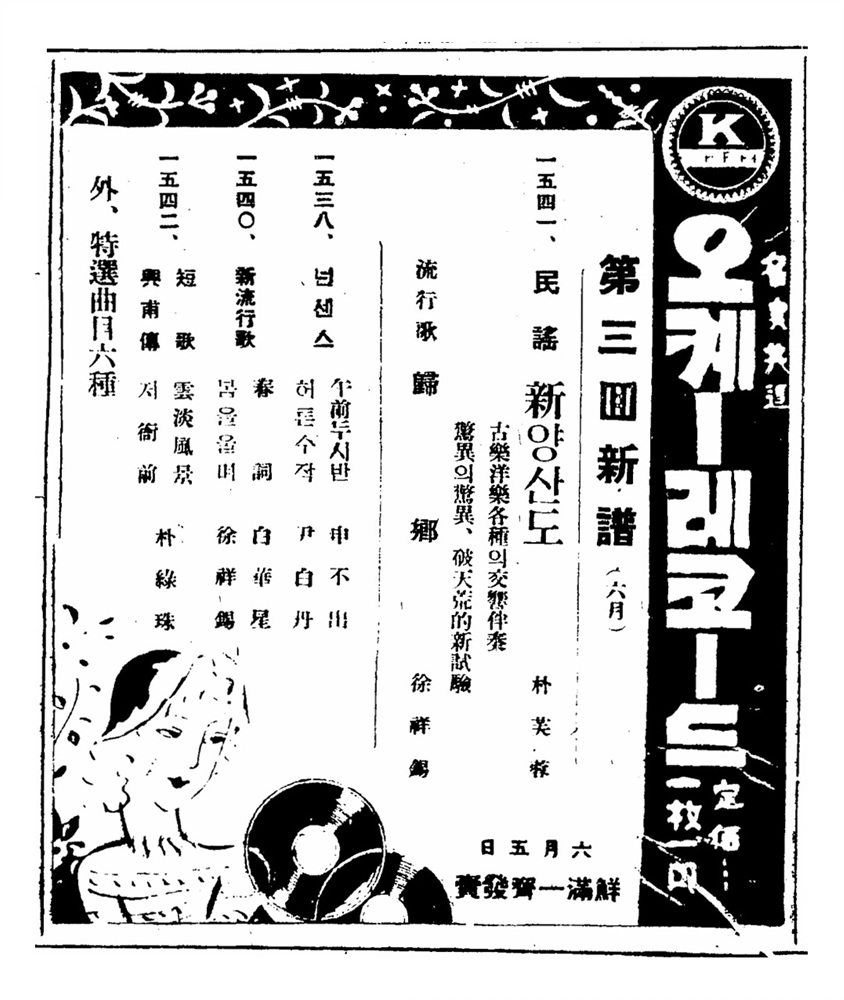 K
오케ー레코ード
定價…
一枚一円
第三回新譜(六月)
一五四一、民謠 新양산도 朴芙蓉
古樂洋樂各種의交響伴奏
驚異의驚異、破天荒的新試驗
流行歌 歸鄕 徐祥錫
一五三八、넌센스 午前두시반 申不出
허튼수작 尹白丹
一五四〇、新流行歌 春詞 白華星
봄을을며 徐祥錫
一五四二、短歌 雲淡風景 朴綠珠
興甫傳 저衙前
外、特選曲目六種
六月五日
鮮滿一齊發賣